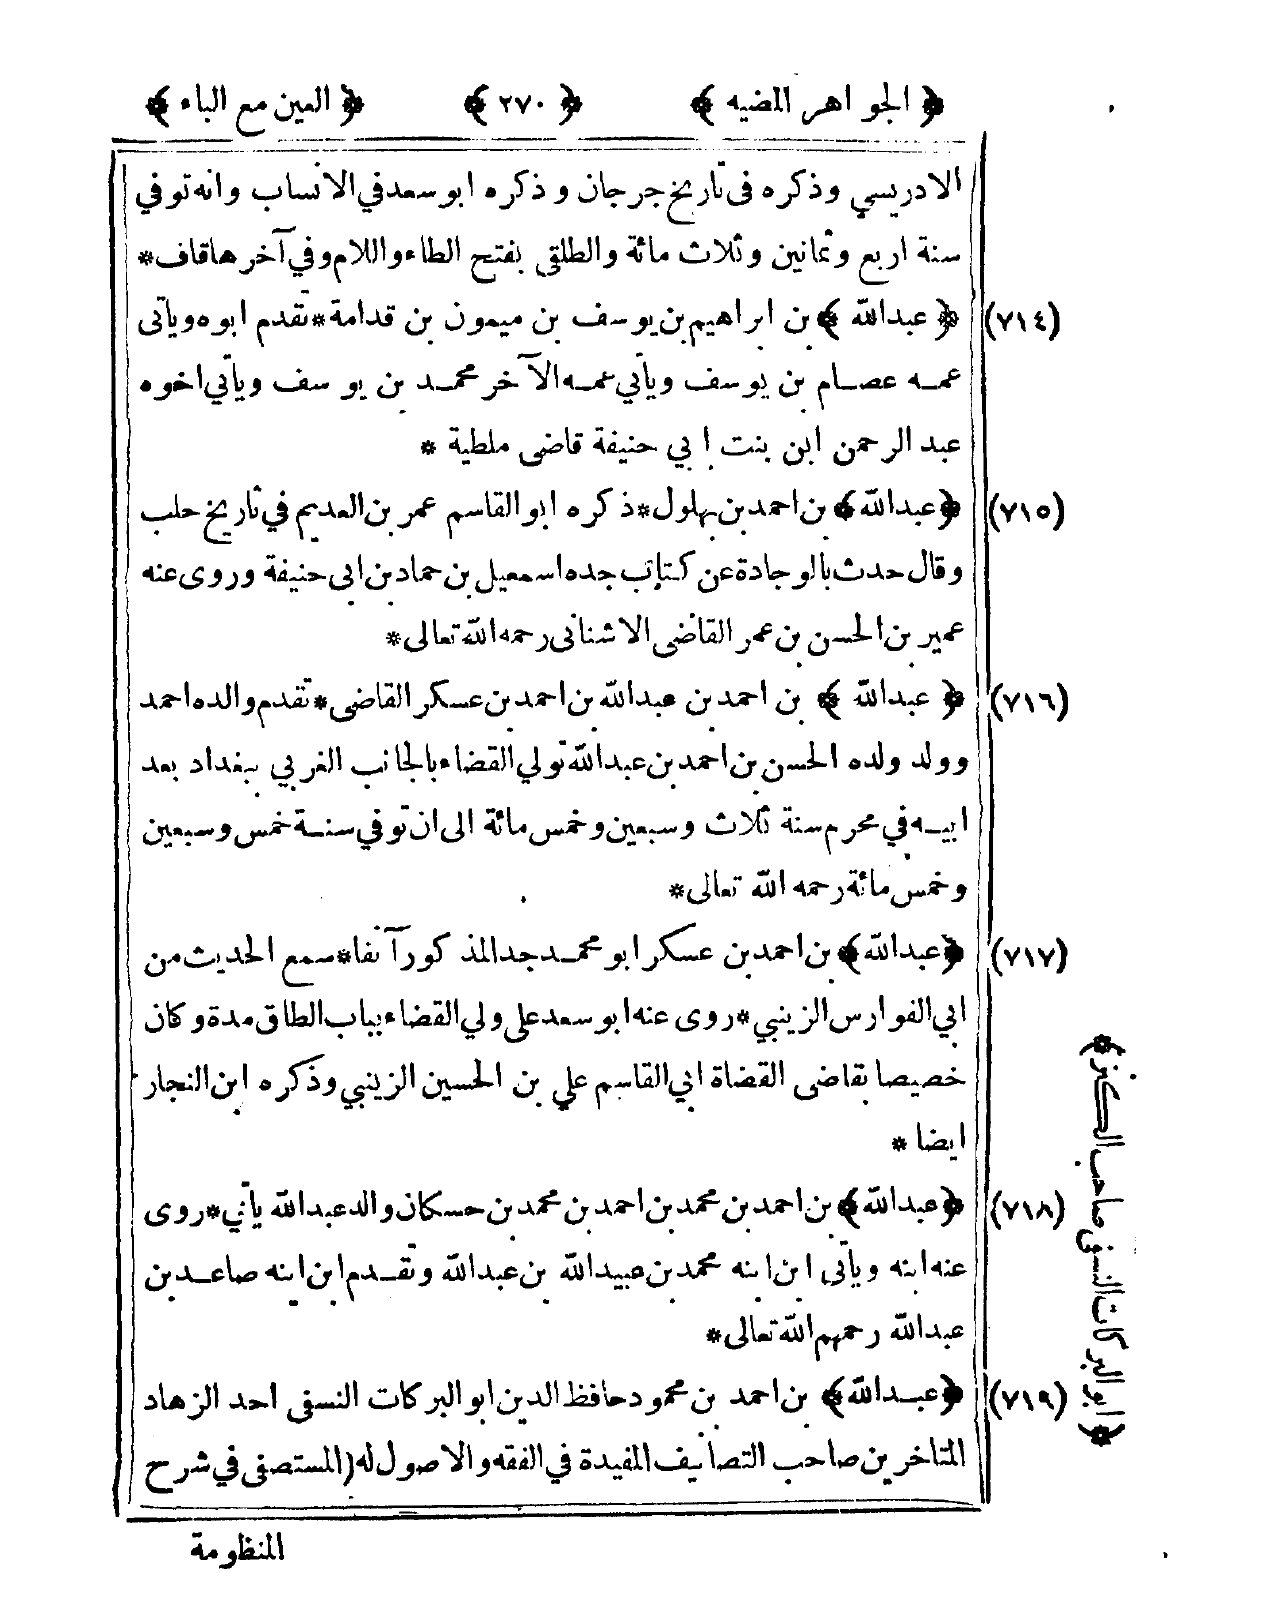 ﴿ الجواهر المضيه ﴾ ﴿ ٢٧٠ ﴾ ﴿ العين مع الباء ﴾
الادريسي وذكره فى تاريخ جرجان وذكره ابو سعد في الانساب وانه توفي
سنة اربع وثمانين وثلاث مائة والطلقى بفتح الطاء واللام وفي آخرها قاف*
(٧١٤) ﴿ عبدالله ﴾ بن ابراهيم بن يوسف بن ميمون بن قدامة* تقدم ابوه ويأتى
عمه عصام بن يوسف ويأتي عمه الآخر محمد بن يوسف ويأتي اخوه
عبد الرحمن ابن بنت ابي حنيفة قاضى ملطية *
(٧١٥) ﴿عبدالله﴾ بن احمد بن بهلول* ذكره ابو القاسم عمر بن العديم في تاريخ حلب
وقال حدث بالوجادة عن كتاب جده اسمعيل بن حماد بن ابى حنيفة وروى عنه
عمير بن الحسن بن عمر القاضى الاشنانى رحمه الله تعالى*
(٧١٦) ﴿ عبدالله ﴾ بن احمد بن عبدالله بن احمد بن عسكر القاضى* تقدم والده احمد
وولد ولده الحسن بن احمد بن عبدالله تولي القضاء بالجانب الغربي ببغداد بعد
ابيه في محرم سنة ثلاث وسبعين وخمس مائة الى ان توفي سنة خمس وسبعين
وخمس مائة رحمه الله تعالى*
(٧١٧) ﴿عبدالله﴾ بن احمد بن عسكر ابو محمد جد المذكور آنفا* سمع الحديث من
ابي الفوارس الزينبي* روى عنه ابو سعد على ولي القضاء بباب الطاق مدة وكان
خصيصا بقاضى القضاة ابي القاسم علي بن الحسين الزينبي وذكره ابن النجار
ايضا *
(٧١٨) ﴿عبدالله﴾ بن احمد بن محمد بن احمد بن محمد بن حسكان والد عبدالله يأتي* روى
عنه ابنه ويأتى ابن ابنه محمد بن عبيدالله بن عبدالله وتقدم ابن ابنه صاعد بن
عبدالله رحمهم الله تعالى*
(٧١٩) ﴿عبدالله﴾ بن احمد بن محمود حافظ الدين ابو البركات النسفى احد الزهاد
المتاخرين صاحب التصانيف المفيدة في الفقه والاصول له (المستصفى في شرح
المنظومة
﴿ابو البركات النسفى صاحب الكنز﴾